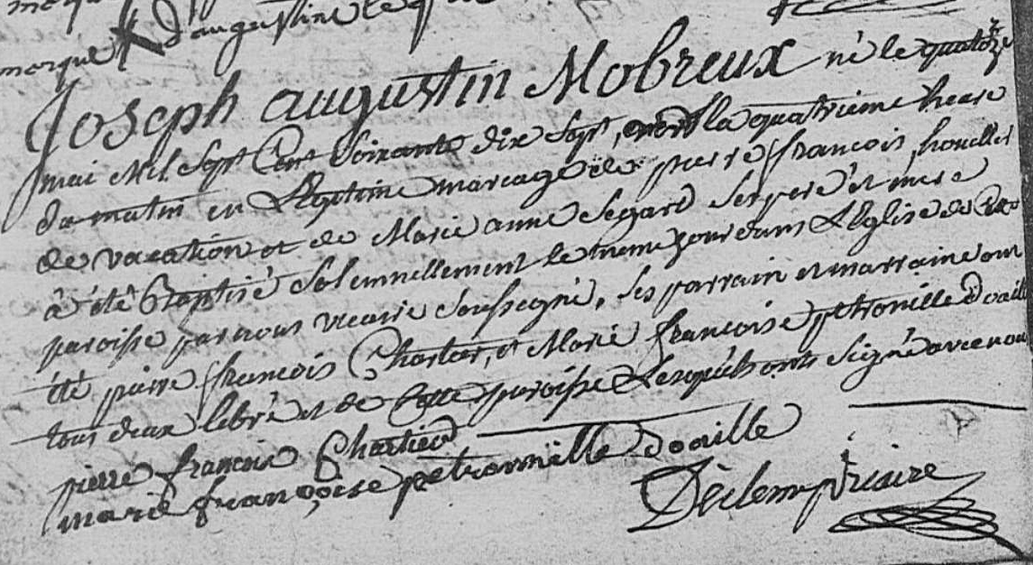 marque d'augustine le
Joseph augustin Mobreux né le quatorze
mai mil sept Cent soixante dix sept, vers la quatrieme heure
du matin en Legitime mariage de pierre françois, houiller
de vacation et de Marie anne Segard ses pere et mere
à été Baptisé solemnellement le meme jour dans L'Eglise de cette
paroisse par nous vicaire soussigné, ses parrain et marraine ont
été pierre françois Chartier, et Marie françoise petronille Doaille
tous deux libre et de Cette paroisse Lesquels ont signé avec nous
pierre francois Chartier
marie françoise petronnille doaille
Déclemy vicaire